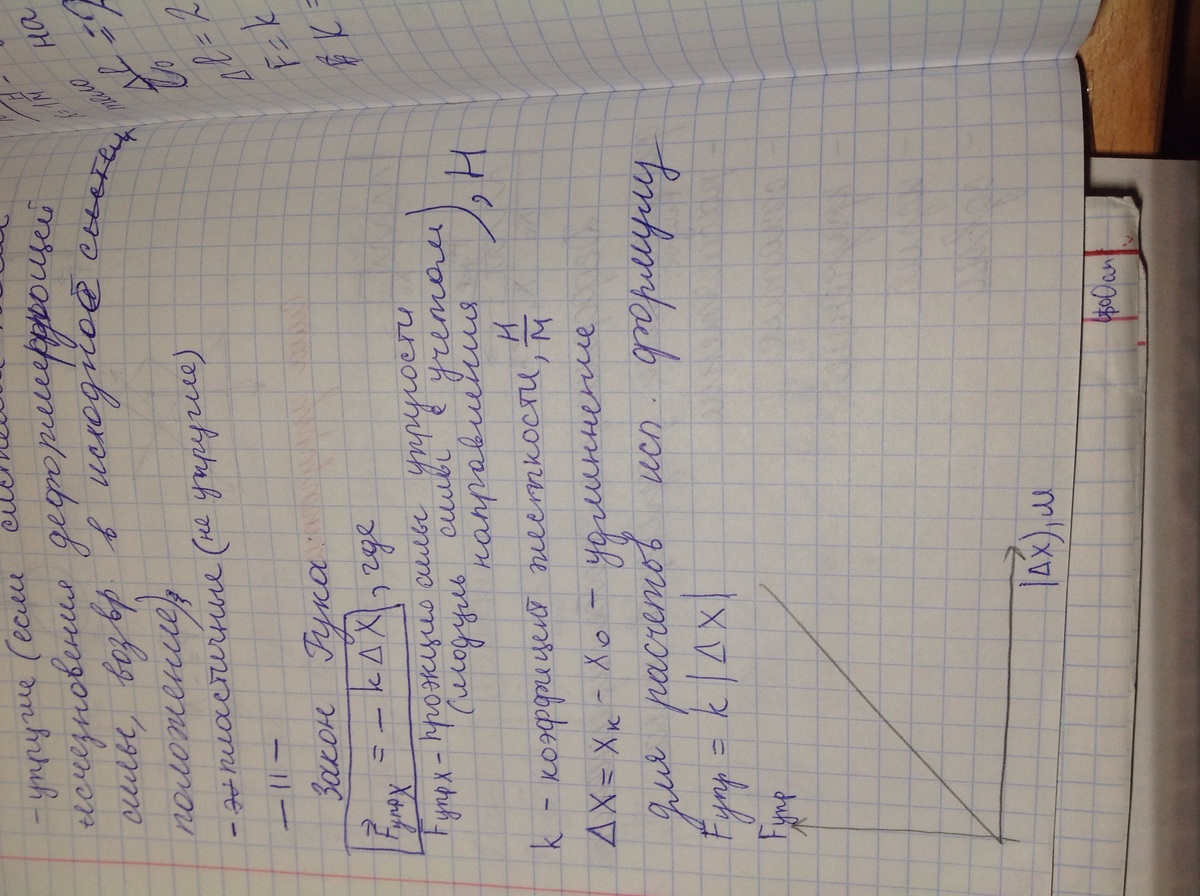 - упругие (если
исчезновения деформирующей
силы, возвр. в исходное систем
положение);
- пластичные (не упругие)
- 11 -
Закон Гука:
F⃗упрx = - kΔX, где
Fупрx - проэкцию силы упругости
(модуль силы с учетом
направления), Н
k - коэффицент жесткости, Н/м
ΔX = Xк - X0 - удлиннение
для расчетов исп. формулу
Fупр = k |ΔX|
Fупр
|ΔX|, м
на
Δl = 2
F = k
K =